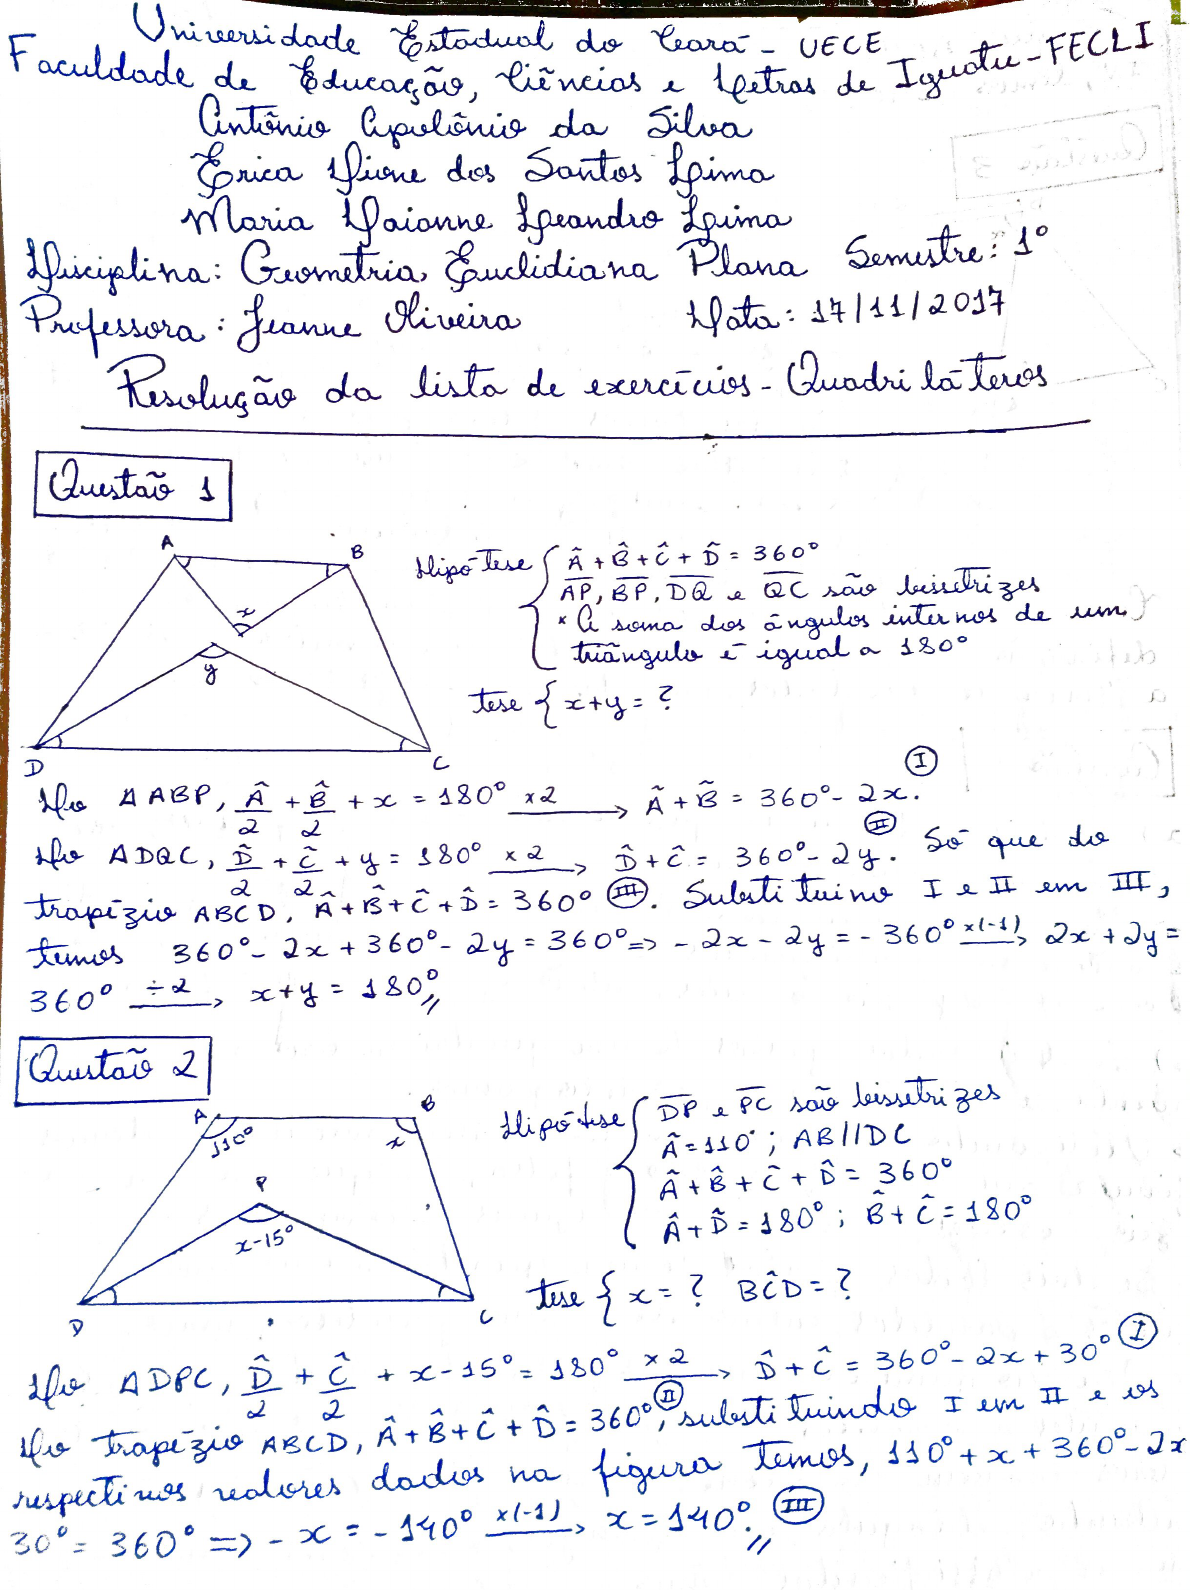 Universidade Estadual do Ceará - UECE
Faculdade de Educação, Ciências e Letras de Iguatu - FECLI
Antônio Apolônio da Silva
Erica Dione dos Santos Lima
Maria Daianne Leandro Lima
Disciplina: Geometria Euclidiana Plana Semestre: 1°
Professora: Jeanne Oliveira Data: 17/11/2017
Resolução da lista de exercícios - Quadriláteros
Questão 1
A
B
x
y
D
C
Hipótese { Â + B̂ + Ĉ + D̂ = 360°
AP, BP, DQ e QC são bissetrizes
* A soma dos ângulos internos de um
triângulo é igual a 180°
tese { x+y = ?
No ΔABP, Â/2 + B̂/2 + x = 180° ×2→ Â + B̂ = 360° - 2x. (I)
No ΔDQC, D̂/2 + Ĉ/2 + y = 180° ×2→ D̂ + Ĉ = 360° - 2y. (II) Só que do
trapézio ABCD, Â + B̂ + Ĉ + D̂ = 360° (III). Substituino I e II em III,
temos 360° - 2x + 360° - 2y = 360° => - 2x - 2y = - 360° ×(-1)→ 2x + 2y =
360° ÷2→ x+y = 180°,,
Questão 2
A
B
110°
x
P
x-15°
D
C
Hipótese { DP e PC são bissetrizes
Â = 110°; AB//DC
Â + B̂ + Ĉ + D̂ = 360°
Â + D̂ = 180°; B̂ + Ĉ = 180°
tese { x = ? BĈD = ?
No ΔDPC, D̂/2 + Ĉ/2 + x - 15° = 180° ×2→ D̂ + Ĉ = 360° - 2x + 30° (I)
No trapézio ABCD, Â + B̂ + Ĉ + D̂ = 360° (II), substituindo I em II e os
respectivos valores dados na figura temos, 110° + x + 360° - 2x
30° = 360° => - x = - 140° ×(-1)→ x = 140°.,, (III)